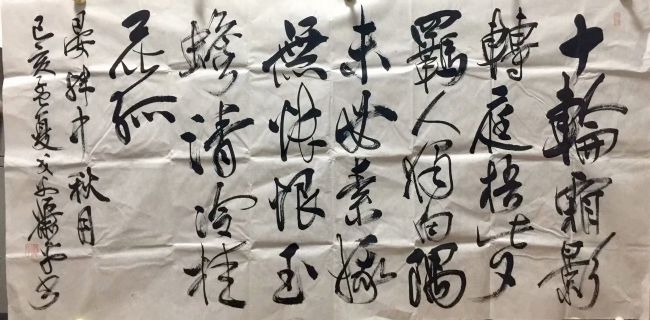 十輪霜影
轉庭梧此夕
羈人獨向隅
未必素娥
無悵恨玉
蟾清冷桂
花孤
晏殊中秋月
己亥孟夏